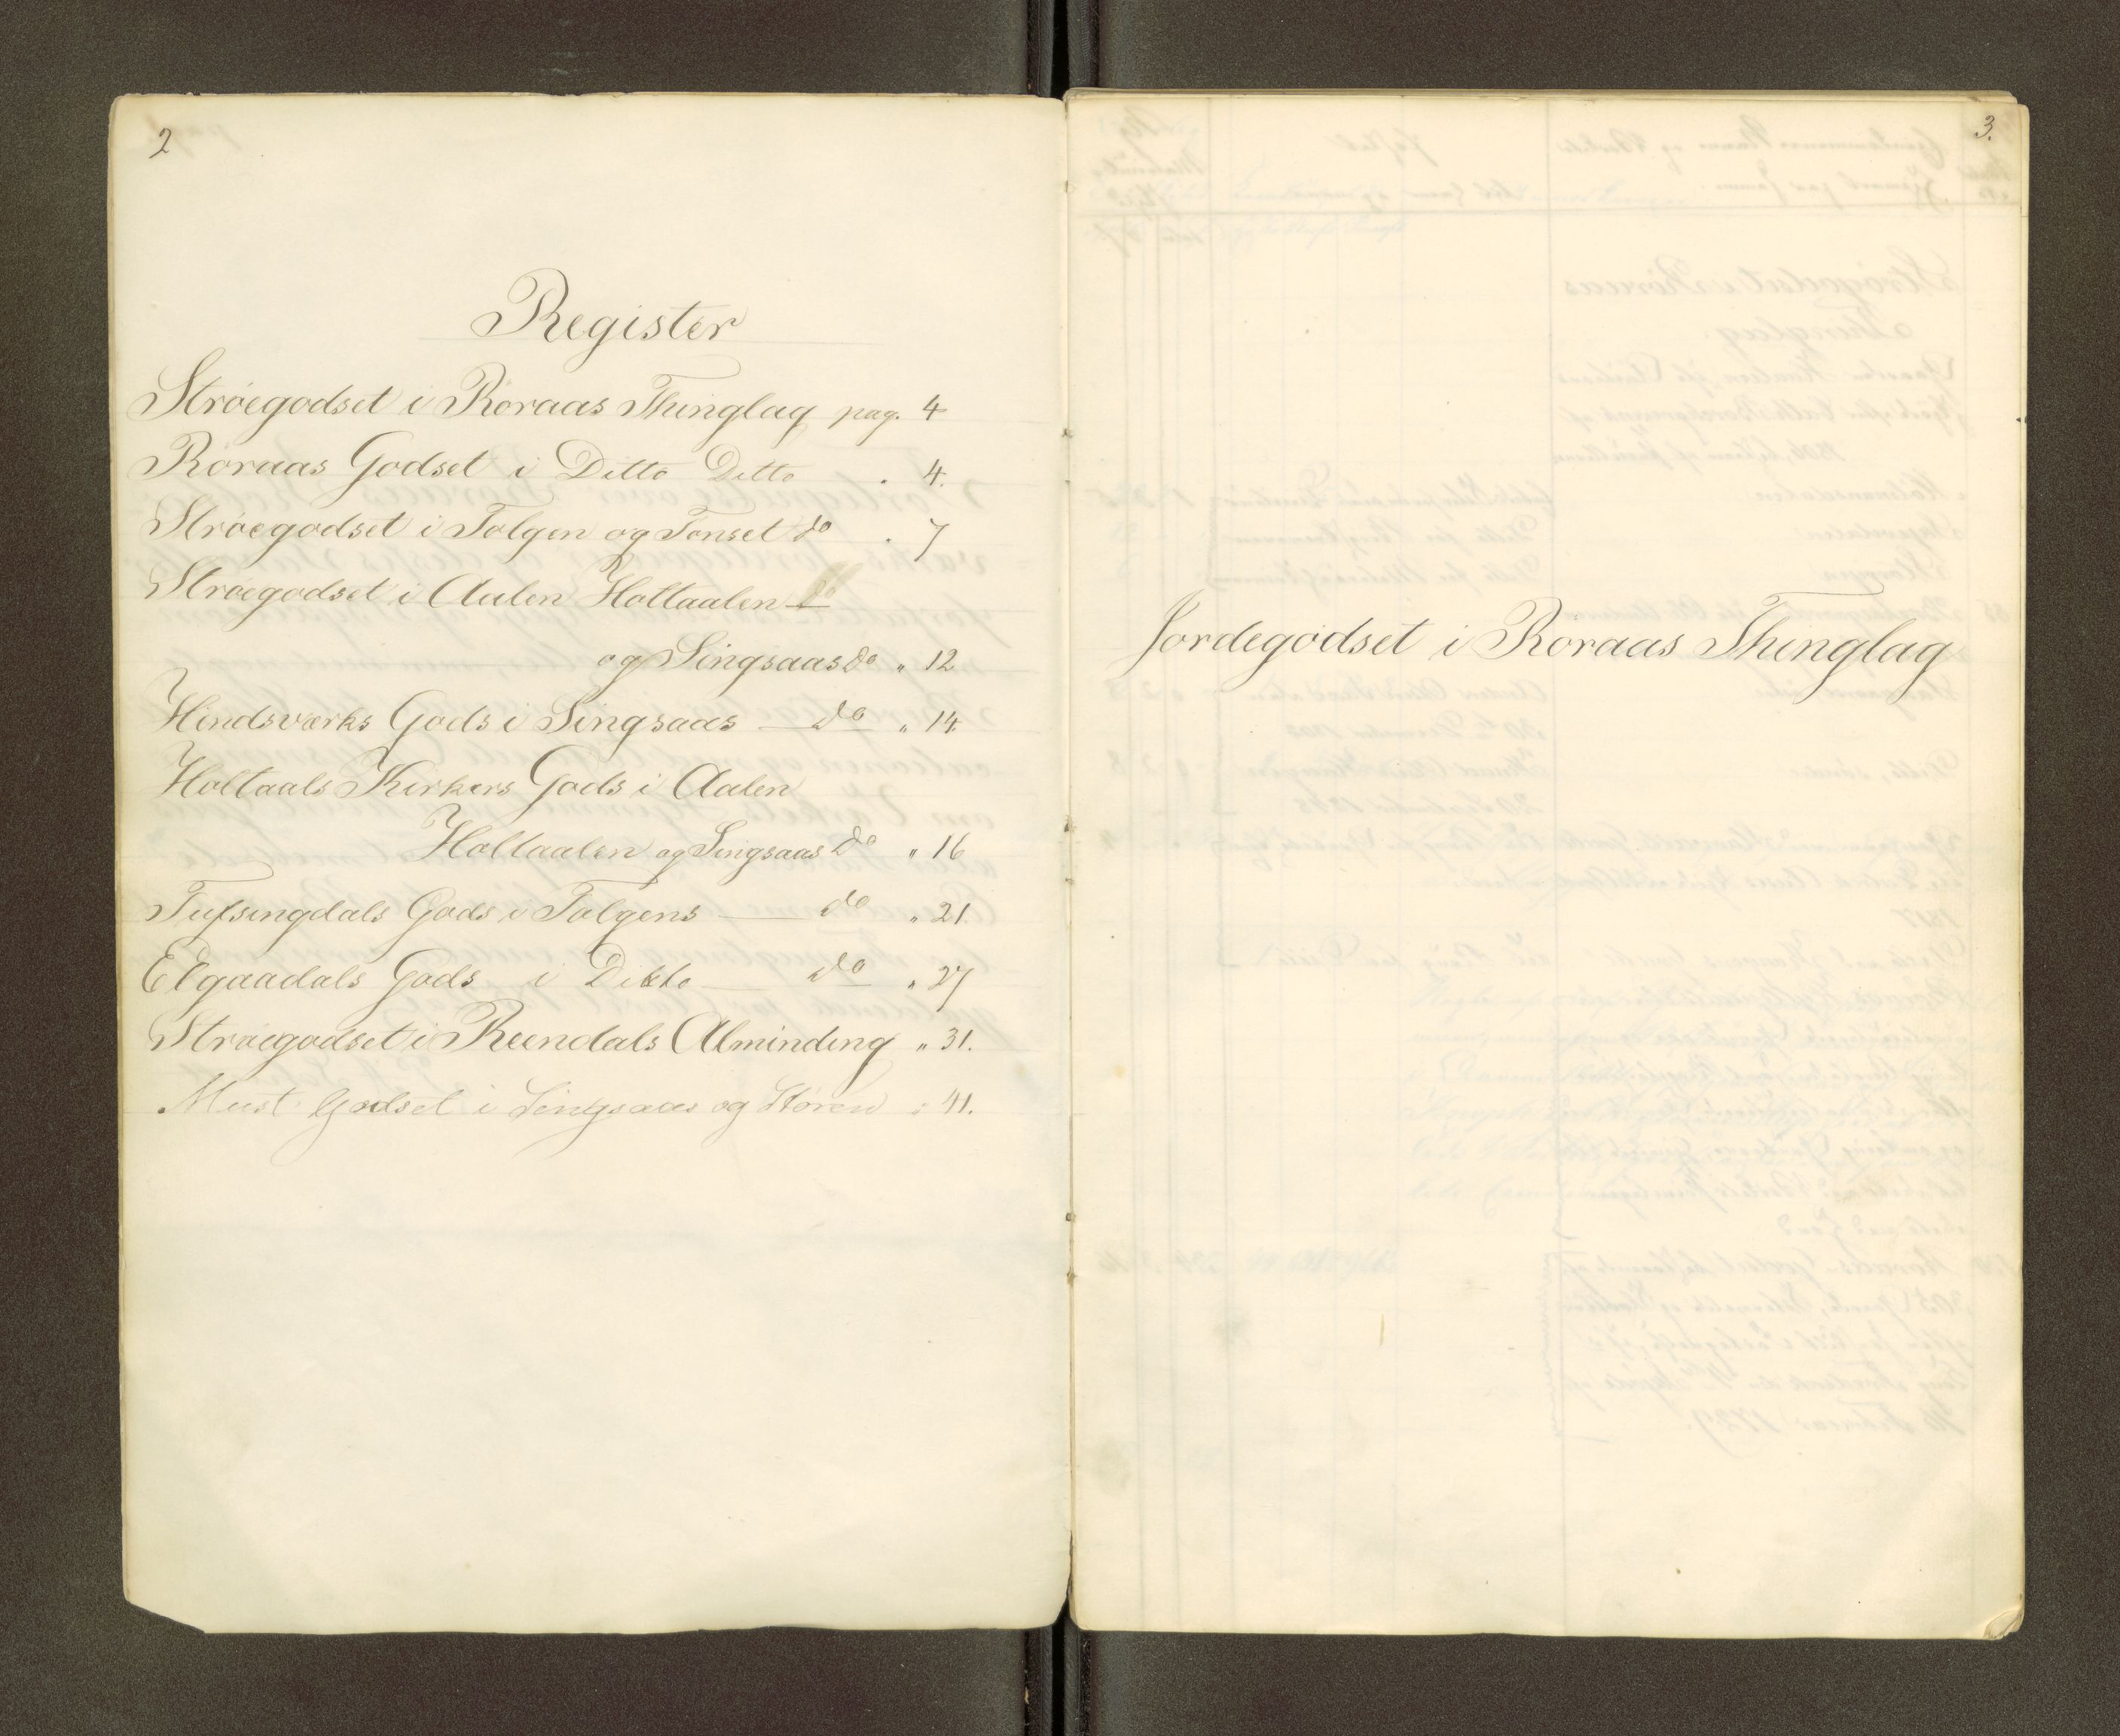 2
Register
Strøegodset i Røraas Thinglag pag. 4
Røraas Godset i Ditto Ditto . 4.
Strøegodset i Tolgen og Tønset do . 7
Strøegodset i Aalen Holtaalen
og Singsaas do " 12
Hindsværks Gods i Singsaas — do " 14.
Holtaals Kirkers Gods i Aalen
Holtaalen og Singsaas do " 16
Tufsingdals Gods i Tolgens — do " 21.
Elgaadals Gods i Ditto — do " 27
Strøegodset i Reendals Alminding " 31.
Must Godset i Singsaas og Støren : 41.
3.
Jordegodset i Røraas Thinglag